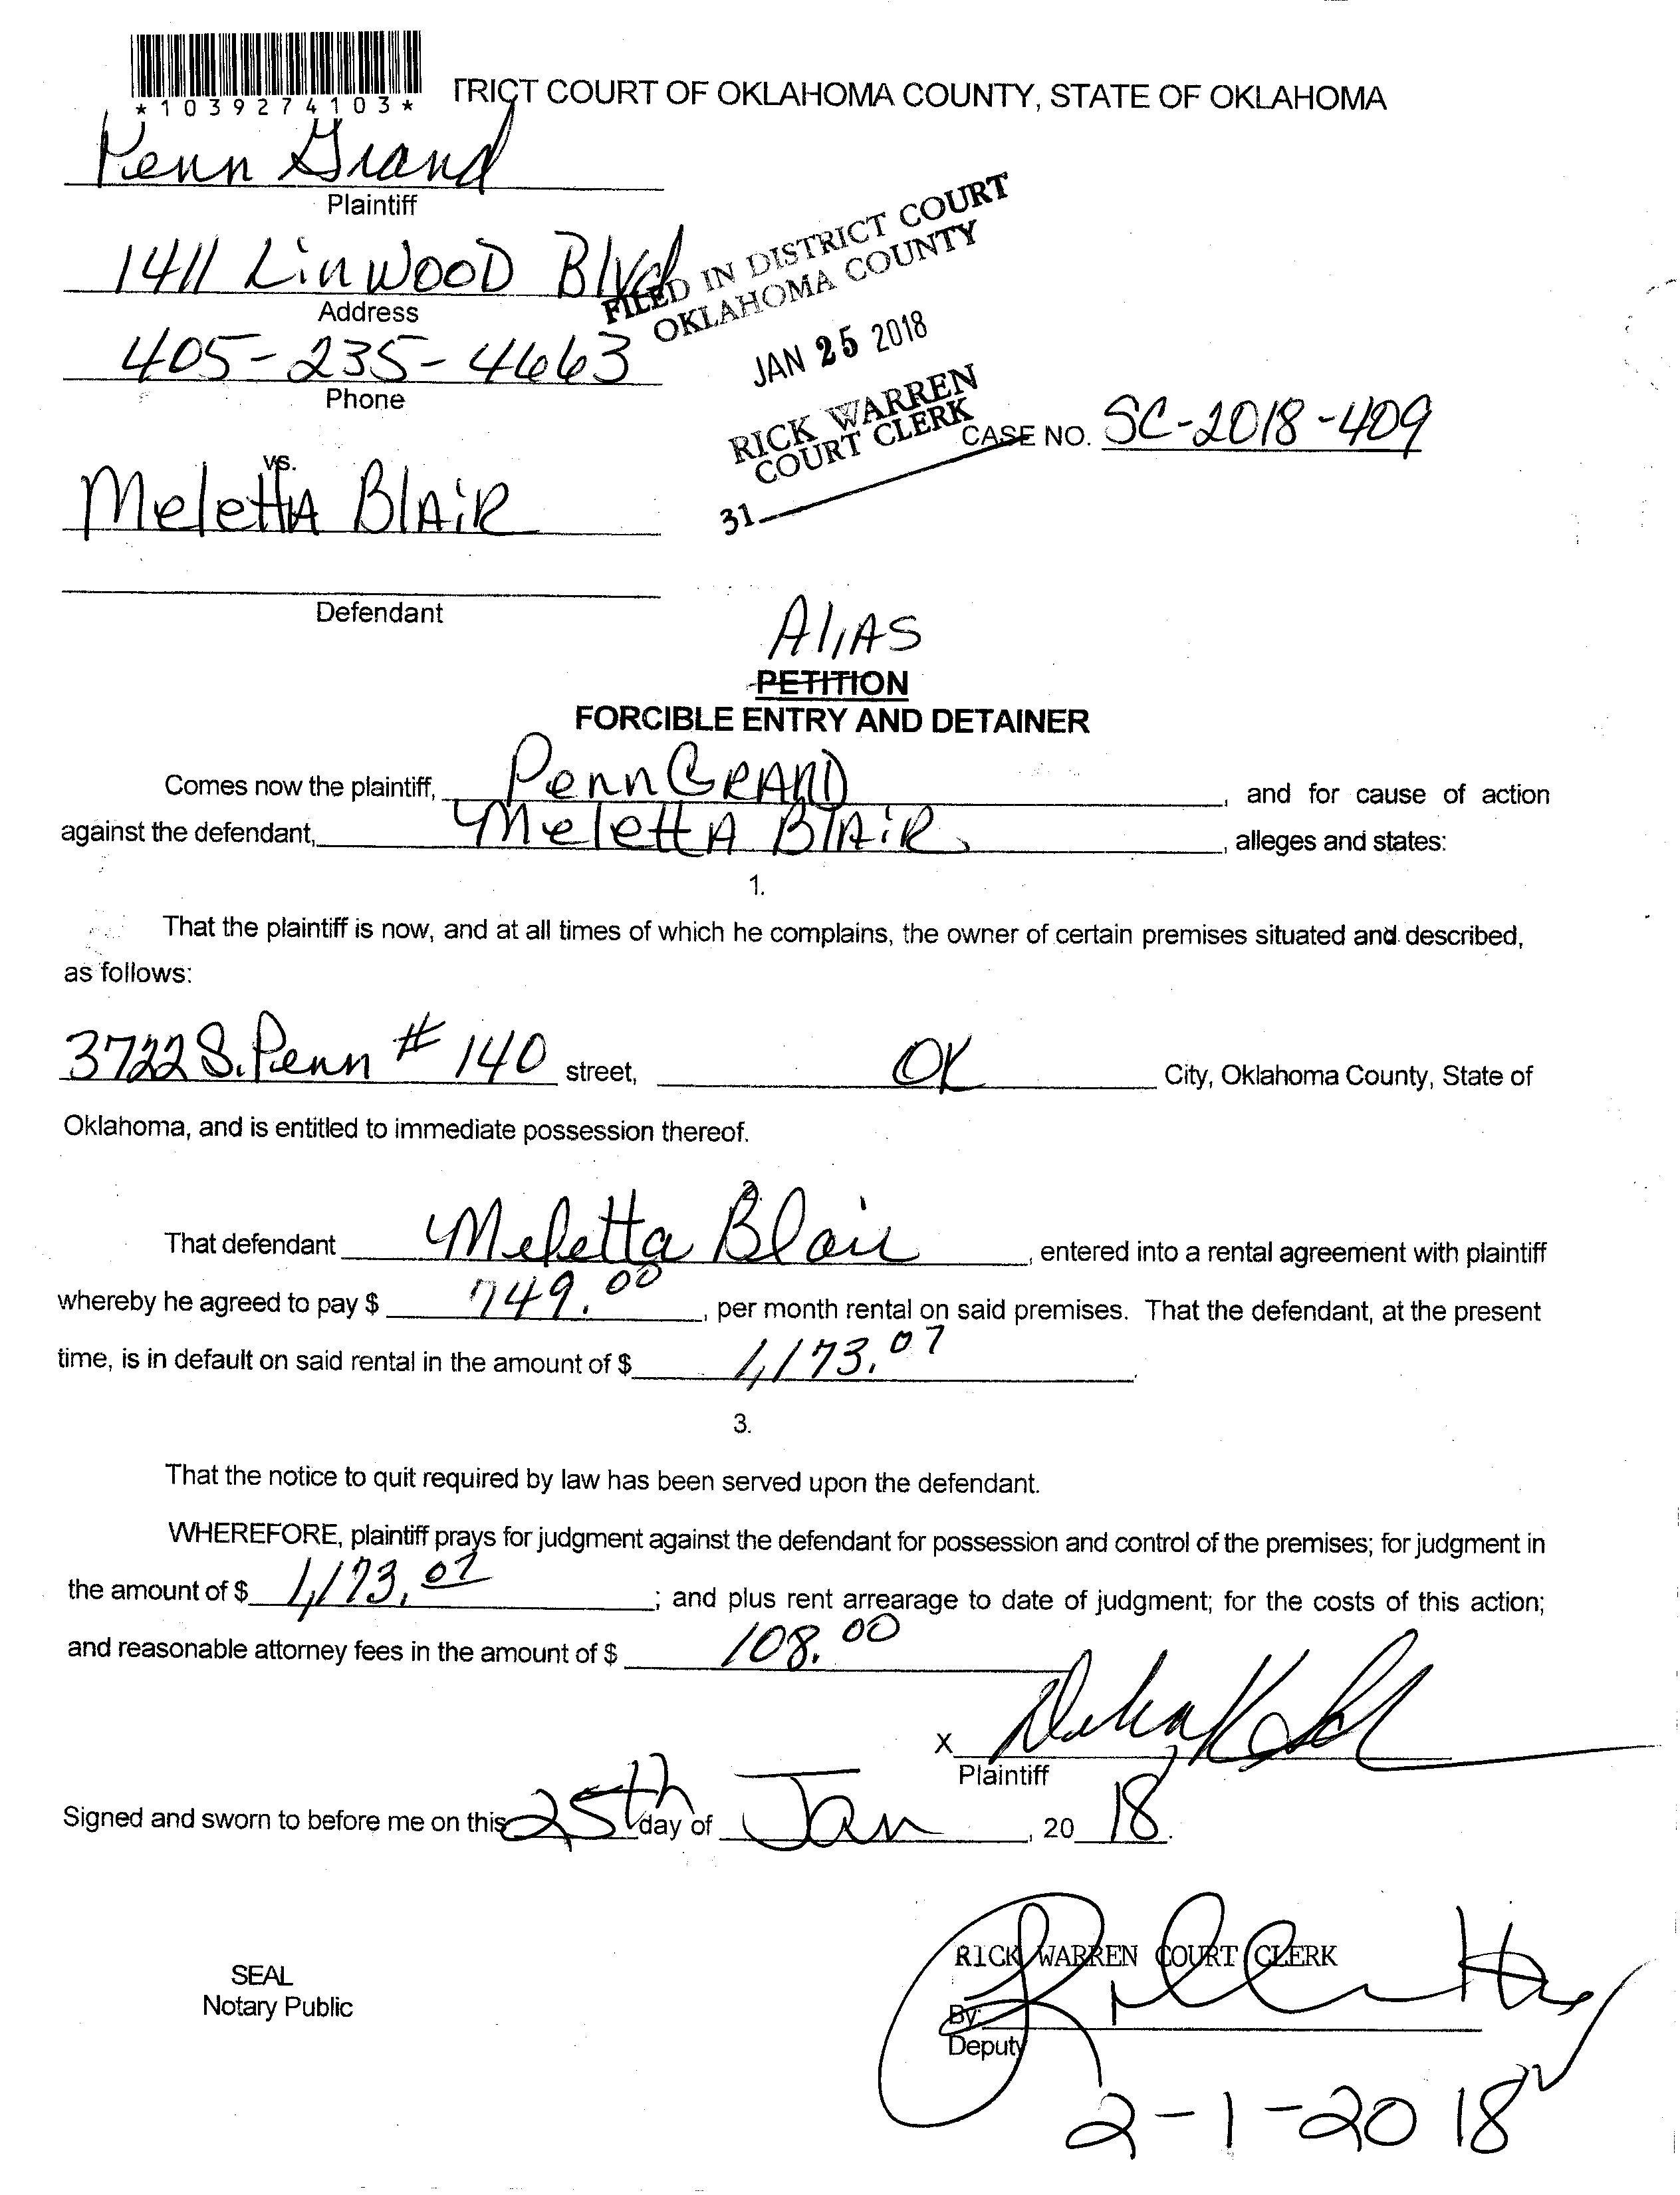 *1039274103*
TRICT COURT OF OKLAHOMA COUNTY, STATE OF OKLAHOMA
Penn Grand
Plaintiff
1411 LinWOOD Blvd
Address
405-235-4663
Phone
FILED IN DISTRICT COURT
OKLAHOMA COUNTY
JAN 25 2018
RICK WARREN
COURT CLERK
31
CASE NO. SC-2018-409
vs.
MelettA BlAiR
Defendant
AliAS
PETITION
FORCIBLE ENTRY AND DETAINER
Comes now the plaintiff, Penn GRAND, and for cause of action
against the defendant, MelettA BlAiR, alleges and states:
1.
That the plaintiff is now, and at all times of which he complains, the owner of certain premises situated and described,
as follows:
3722 S. Penn # 140 street, OK City, Oklahoma County, State of
Oklahoma, and is entitled to immediate possession thereof.
2.
That defendant Meletta Blair, entered into a rental agreement with plaintiff
whereby he agreed to pay $ 749.00, per month rental on said premises. That the defendant, at the present
time, is in default on said rental in the amount of $ 1,173.07.
3.
That the notice to quit required by law has been served upon the defendant.
WHEREFORE, plaintiff prays for judgment against the defendant for possession and control of the premises; for judgment in
the amount of $ 1,173.07; and plus rent arrearage to date of judgment; for the costs of this action;
and reasonable attorney fees in the amount of $ 108.00
X
Plaintiff
Signed and sworn to before me on this 25th day of Jan, 20 18.
RICK WARREN COURT CLERK
SEAL
Notary Public
By:
Deputy
2-1-2018